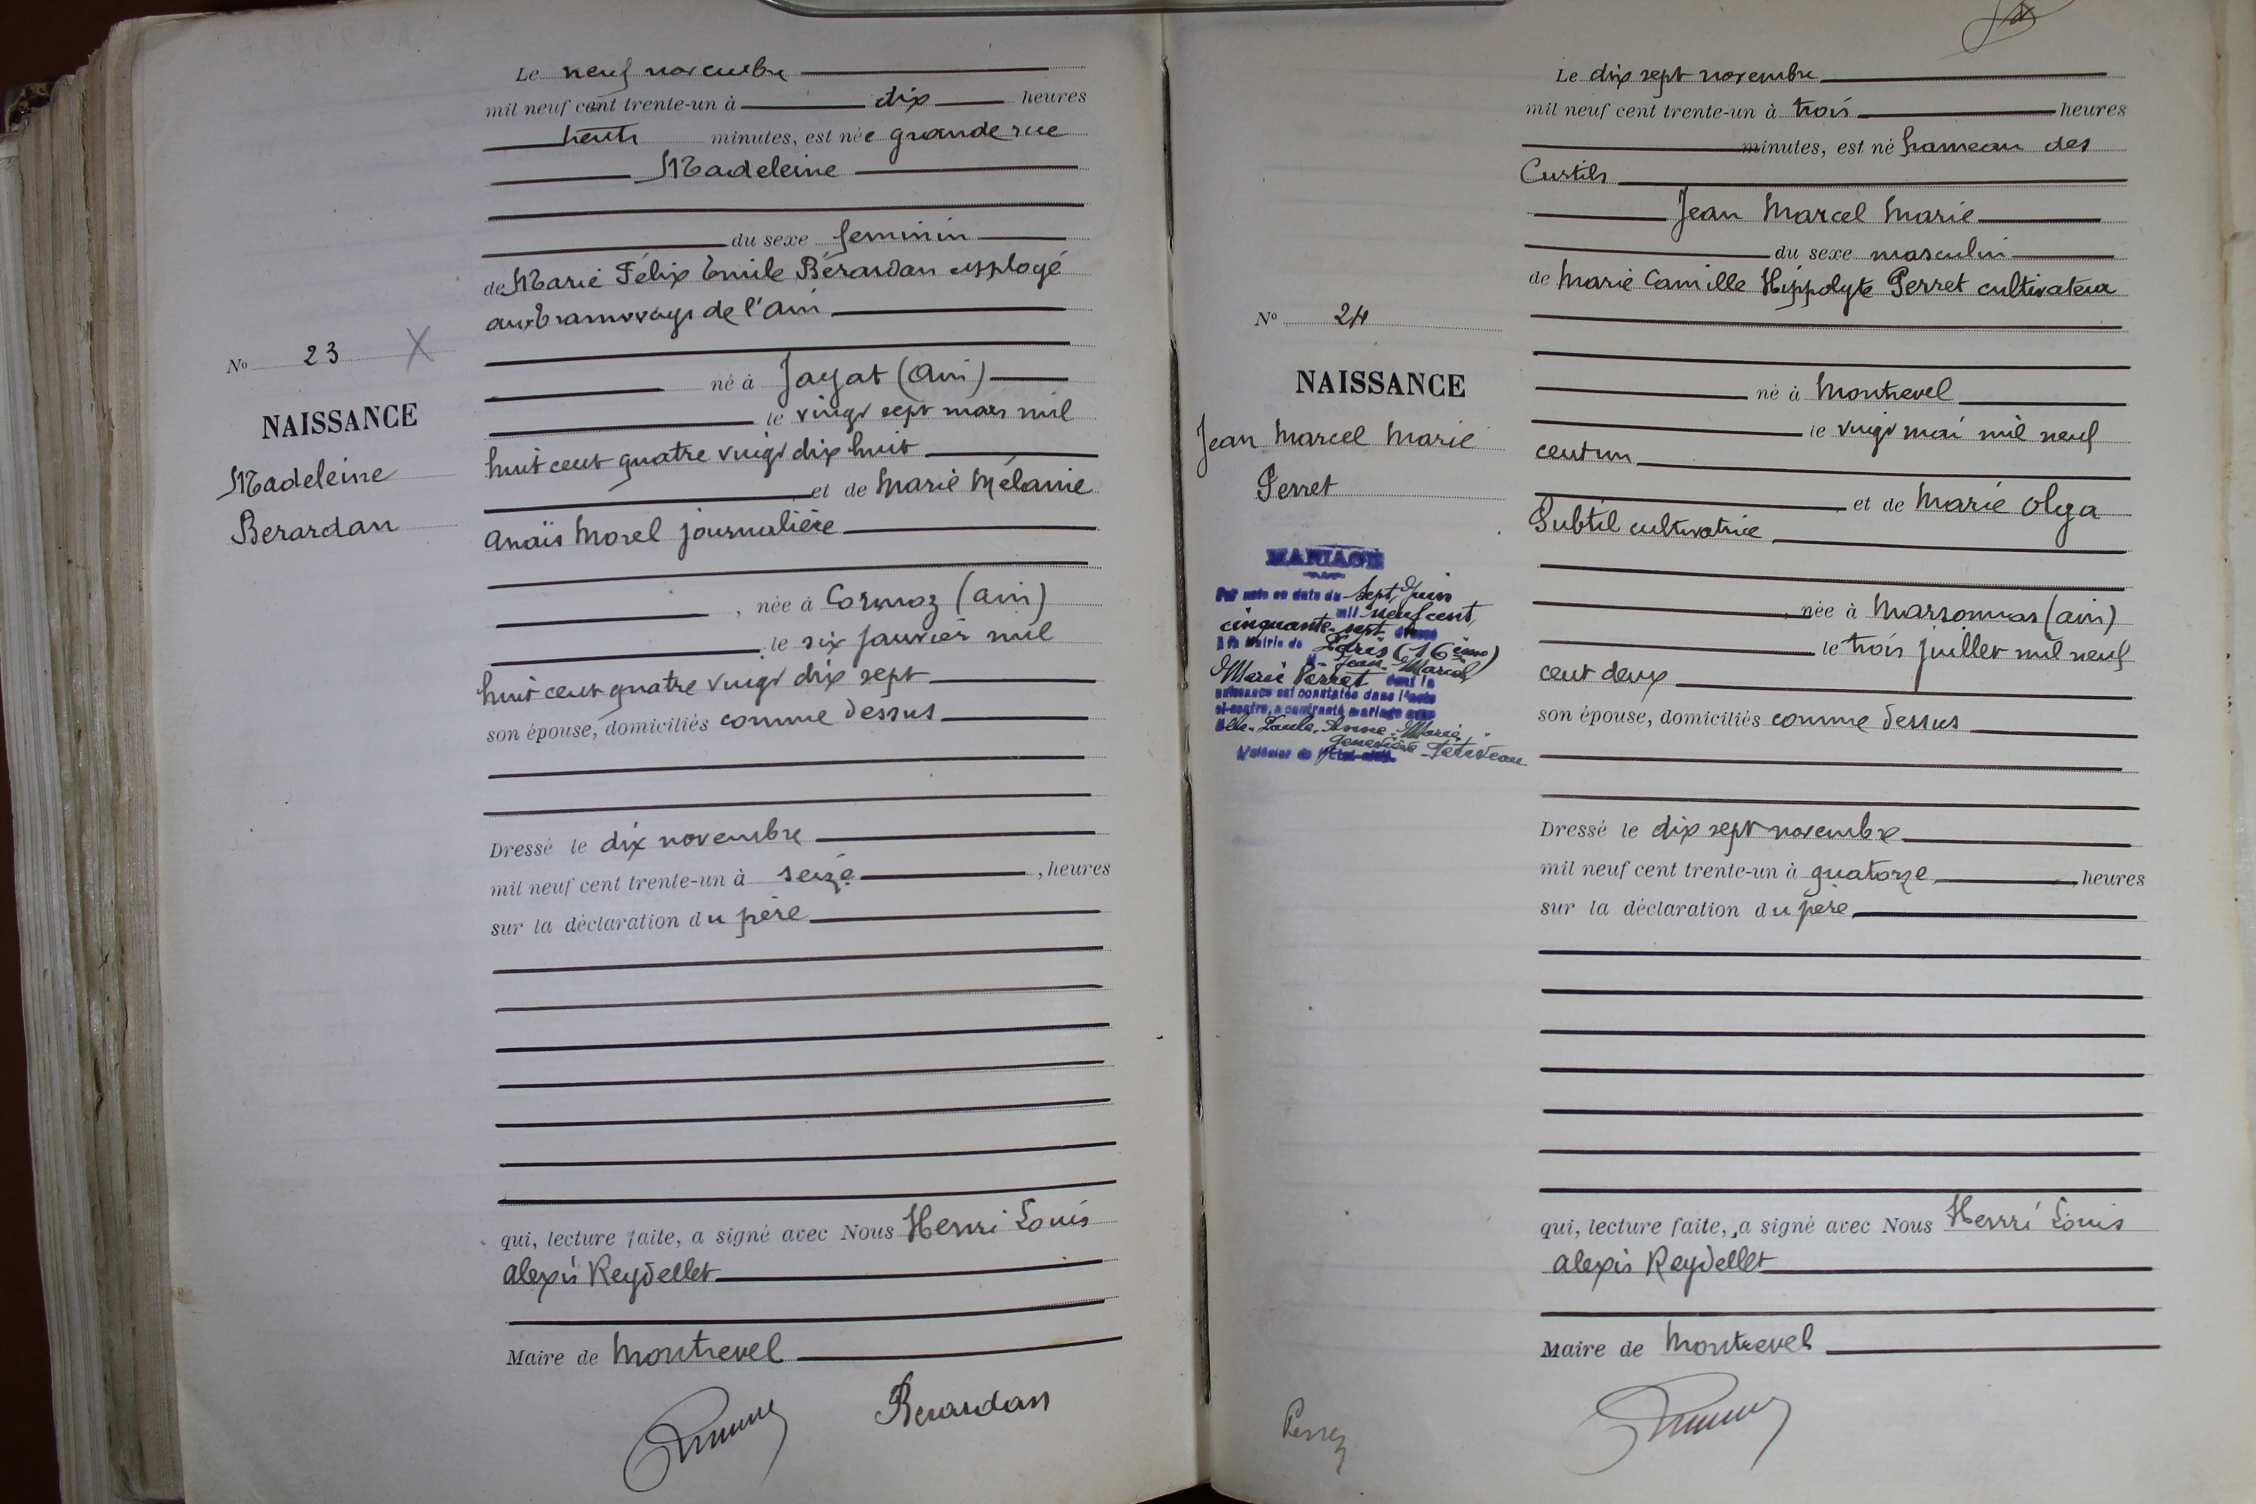 Le neuf novembre
mil neuf cent trente-un à dix heures
trente minutes, est née grande rue
Madeleine
du sexe feminin
de Marie Félix Emile Bérardan employé
aux tramways de l'ain
né à Jayat (Ain)
le vingt sept mars mil
huit cent quatre vingt dix huit
et de Marie Mélanie
Anaïs Morel journalière
, née à Cormoz (ain)
le six janvier mil
huit cent quatre vingt dix sept
son épouse, domiciliés comme dessus
Dressé le dix novembre
mil neuf cent trente-un à seize, heures
sur la déclaration du père
qui, lecture faite, a signé avec Nous Henri Louis
Alexis Reydellet
Maire de Montrevel
Berardan
No 23 X
NAISSANCE
Madeleine
Berardan
Le dix sept novembre
mil neuf cent trente-un à trois heures
minutes, est né hameau des
Curtils
Jean Marcel Marie
du sexe masculin
de Marie Camille Hippolyte Perret cultivateur
né à Montrevel
le vingt mai mil neuf
cent un
et de Marie Olga
Subtil cultivatrice
, née à Marsonnas (ain)
le trois juillet mil neuf
cent deux
son épouse, domiciliés comme dessus
Dressé le dix sept novembre
mil neuf cent trente-un à quatorze, heures
sur la déclaration du père
qui, lecture faite, a signé avec Nous Henri Louis
Alexis Reydellet
Maire de Montrevel
Perret
No 24
NAISSANCE
Jean Marcel Marie
Perret
MARIAGE
Par acte en date du sept Juin
mil neuf cent
cinquante-sept dressé
à la Mairie de Paris (16ème)
M. Jean-Marcel
Marie Perret dont la
naissance est constatée dans l'acte
ci-contre, a contracté mariage avec
Melle Paule-Anne-Marie
Geneviève
L'officier de l'Etat-civil